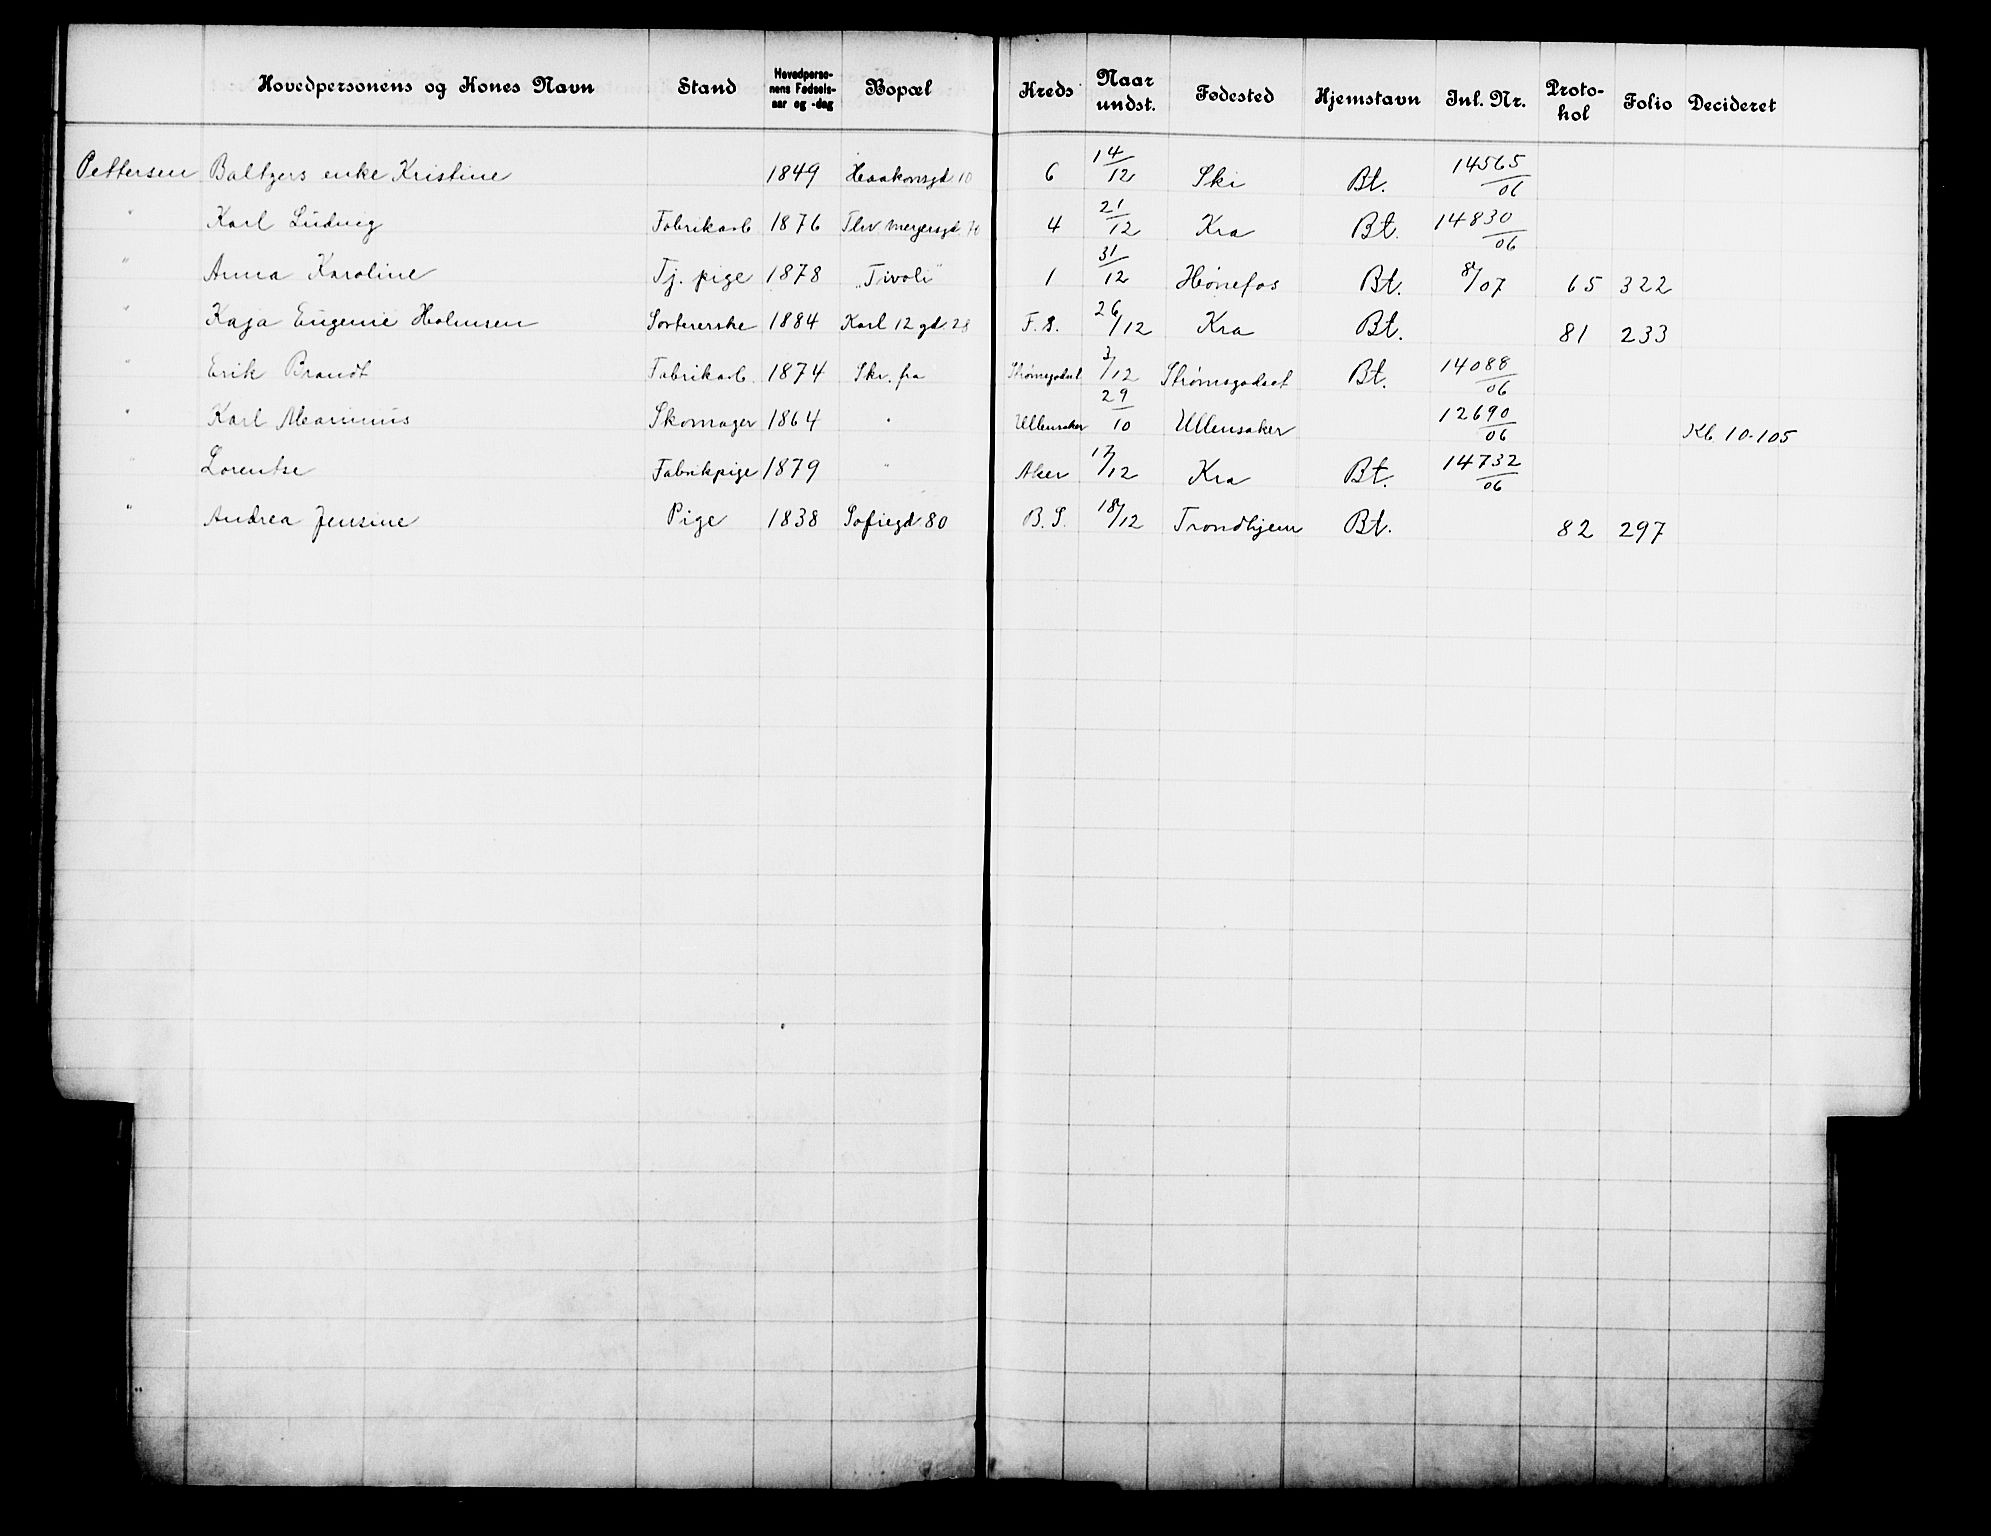 Hovedpersonens og Kones Navn Stand Hovedpersonens Fødselsaar og -dag Bopæl Kreds Naar undst. Fødested Hjemstavn Inl. Nr. Protokol Folio Decideret
Pettersen Baltzers enke Kristine 1849 Haakonsgd 10 6 14/12 Ski Bt. 14565/06
" Karl Ludvig Fabrikarb. 1876 Thv Meyersgd. 4 21/12 Kra Bt. 14830/06
" Anna Karoline Tj. pige 1878 „Tivoli" 1 31/12 Hønefos Bt. 8/07 65 322
" Kaja Eugenie Holmsen Sortererske 1884 Karl 12 gd. 28 F. S. 26/12 Kra Bt. 81 233
" Erik Brandt Fabrikarb. 1874 Skr. fra Strømsgodset 3/12 Strømsgodset Bt. 14088/06
" Karl Marinius Skomager 1864 " Ullensaker 29/10 Ullensaker 12690/06 Kb 10-105
" Lorentse Fabrikpige 1879 " Aker 17/12 Kra Bt. 14732/06
" Andrea Jensine Pige 1838 Sofiegd. 80 B. S. 18/12 Trondhjem Bt. 82 297